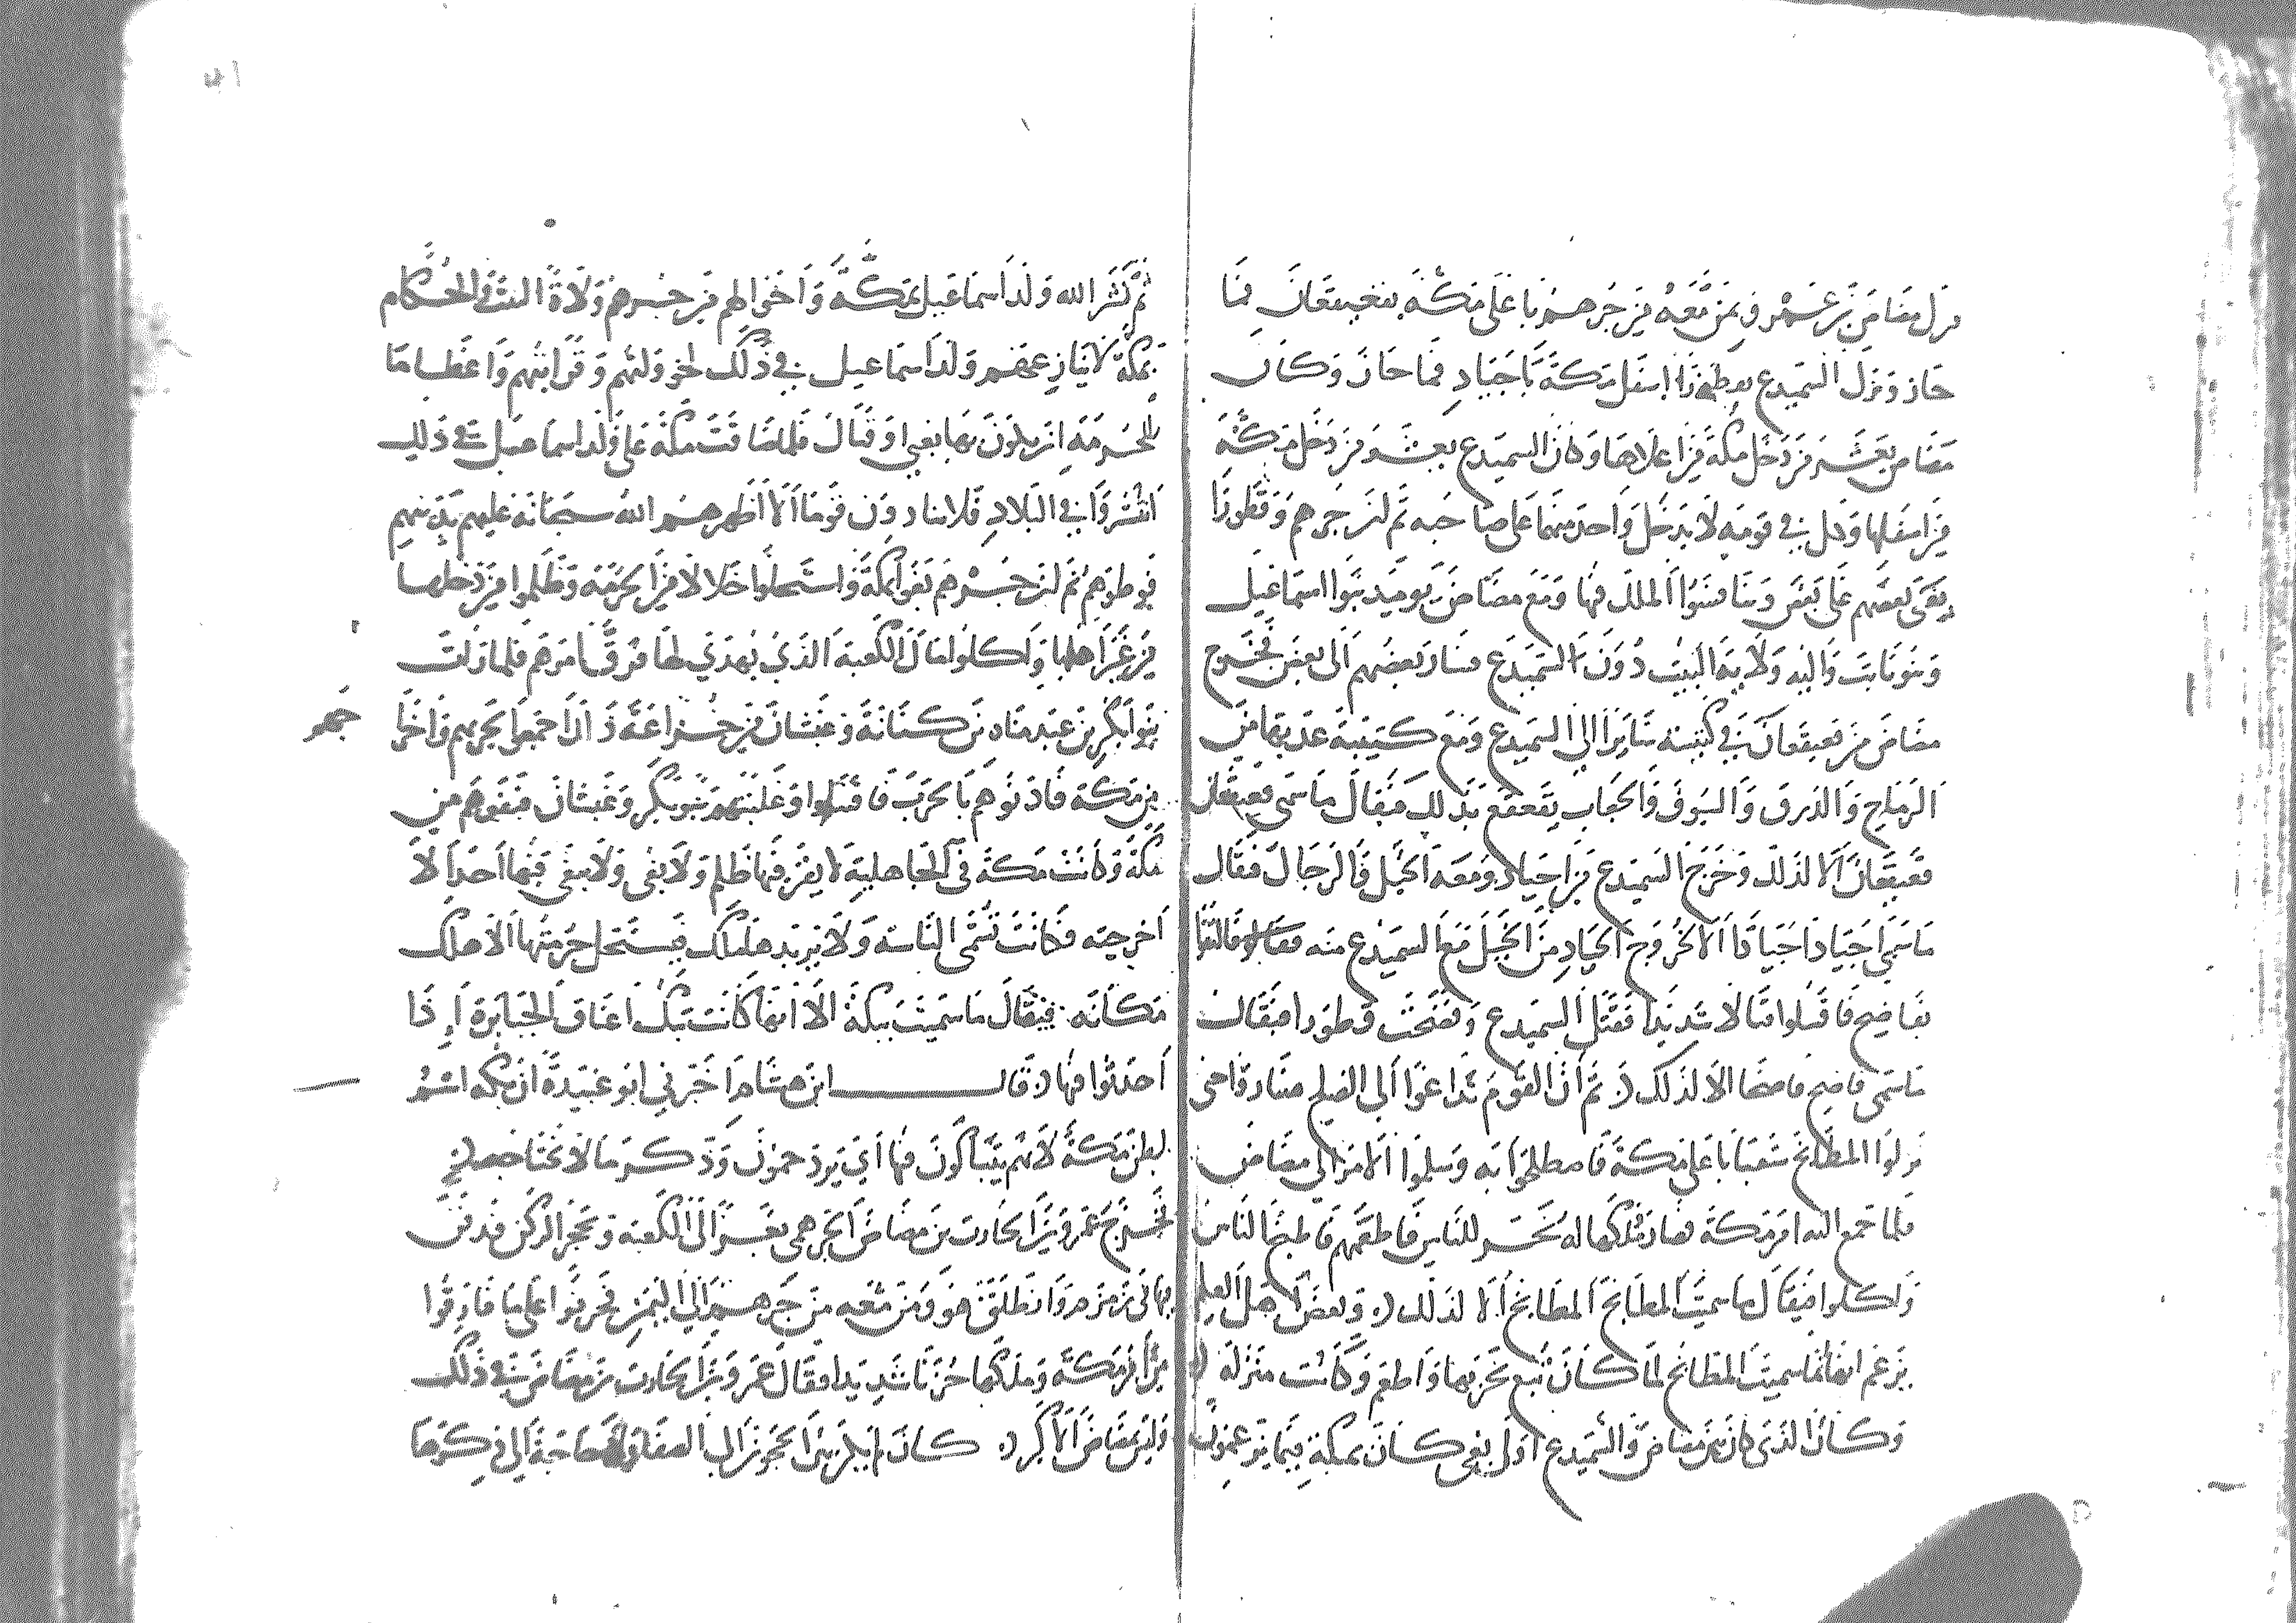 نزل مضاض بن عمرو فيمن معه من جرهم بأعلى مكة بقعيقعان فما
حاز ونزل السميدع بقطورا اسفل مكة بأجياد فما حاز وكان
مضاض يعشر من دخل مكة من اعلاها وكان السميدع يعشر من دخل مكة
من اسفلها وكل في قومه لا يدخل واحد منهما على صاحبه ثم ان جرهم وقطورا
بغى بعضهم على بعض وتنافسوا الملك فيها ومع مضاض يوميذ بنوا اسماعيل
وبنو نابت واليه ولاية البيت دون السميدع فسار بعضهم الى بعض فخرج
مضاض من قعيقعان في كتيبته سايرا الى السميدع ومع كتيبته عدتها من
الرماح والدرق والسيوف والجعاب يقعقع بذلك فيقال ما سمى قعيقعان
قعيقعان الا لذلك وخرج السميدع من اجياد ومعه الخيل والرجال فيقال
ما سمي اجياد اجيادا الا لخروج الجياد من الخيل مع السميدع منه فالتقوا
بفاضح فاقتتلوا قتالا شديدا فقتل السميدع وفضحت قطورا فيقال
ما سمى فاضح فاضحا الا لذلك ثم ان القوم تداعوا الى الصلح فساروا حتى
نزلوا المطابخ شعبا بأعلى مكة فاصطلحوا به وسلموا الامر الى مضاض
فلما جمع اليه امر مكة فصار ملكها له نحر للناس فاطعمهم فاطبخ الناس
واكلوا فيقال ما سميت المطابخ المطابخ الا لذلك وبعض اهل العلم
يزعم انها انما سميت المطابخ لما كان تبع نحر بها واطعم وكانت منزله
وكان الذي كان بين مضاض والسميدع اول بغي كان بمكة فيما يزعمون
ثم نشر الله ولد اسماعيل بمكة واخوالهم من جرهم ولاة البيت والحكام
بمكة لا ينازعهم ولد اسماعيل في ذلك لخؤولتهم وقرابتهم واعظاما
للحرمة ان يكون بها بغي او قتال فلما ضاقت مكة على ولد اسماعيل في ذلك
انتشروا في البلاد فلا يناوون قوما الا اظهرهم الله سبحانه عليهم بدينهم
فوطوهم ثم ان جرهم بغوا بمكة واستحلوا خلالا من الحرمة وظلموا من دخلها
من غير اهلها واكلوا مال الكعبة الذي يهدى لها فرق امرهم فلما رات
بنوا بكر بن عبد مناه بن كنانة وغبشان من خزاعة ذلك اجمعوا لحربهم واخرا
جهم
من مكة فاذنوهم بالحرب فاقتتلوا وغلبتهم بنو بكر وغبشان فنفوهم من
مكة وكانت مكة في الجاهلية لا يقر فيها ظلم ولا بغي ولا يبغى فيها احد الا
اخرجته فكانت تسمى الناسة ولا يريدها ملك يستحل حرمتها الا هلك
مكانه فيقال ما سميت ببكة الا انها كانت تبك اعناق الجبابرة اذا
احدثوا فيها قال ابن هشام اخبرني ابو عبيدة ان بكه اسم
لبطن مكة لانهم يتباكون فيها اي يزدحمون وذكر ما لا نحتاجه
فخرج عمرو بن الحارث بن مضاض الجرهمي بغزالي الكعبة وحجر الركن فدفن
بها في زمزم وانطلق هو ومن معه من جرهم الى اليمن فحزنوا على ما فارقوا
من امر مكة وملكها حزنا شديدا فقال عمرو بن الحارث بن مضاض في ذلك
وليس بمضاض الاكبر كان لم يكن بين الحجون الى الصفا